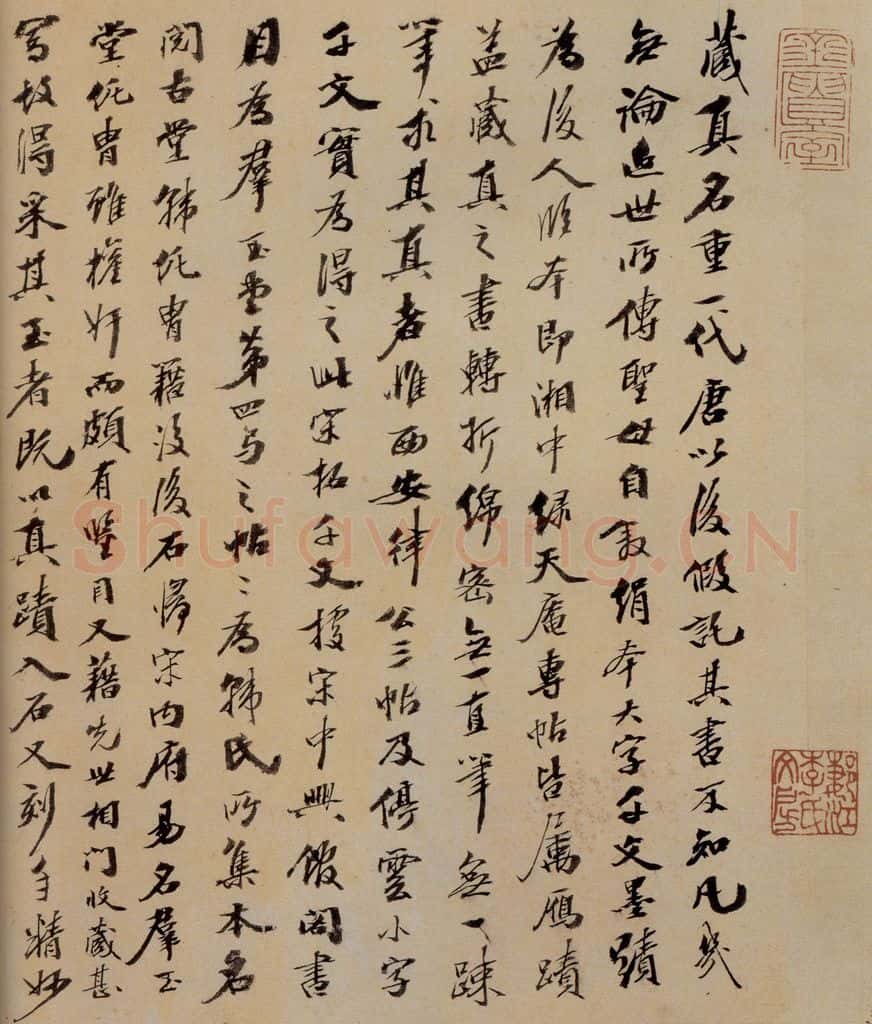 藏真名重一代唐以後假託其書不知凡幾
無論近世所傳聖母自敘絹本大字千文墨蹟
為後人臨本即湘中綠天庵專帖皆屬鴈蹟
蓋藏真之書轉折綿密無一直筆無一疎
筆求其真者惟西安律公三帖及停雲小字
千文實為得之此宋拓千文據宋中興館閣書
目為羣玉堂第四与之帖〻為韓氏所集本名
閱古堂韓侂冑籍沒後石歸宋內府易名羣玉
堂侂冑雖權奸而頗有鑒目又藉先世相門收藏甚
富故得采其玉者既以真蹟入石又刻手精妙
Shufawang.CN